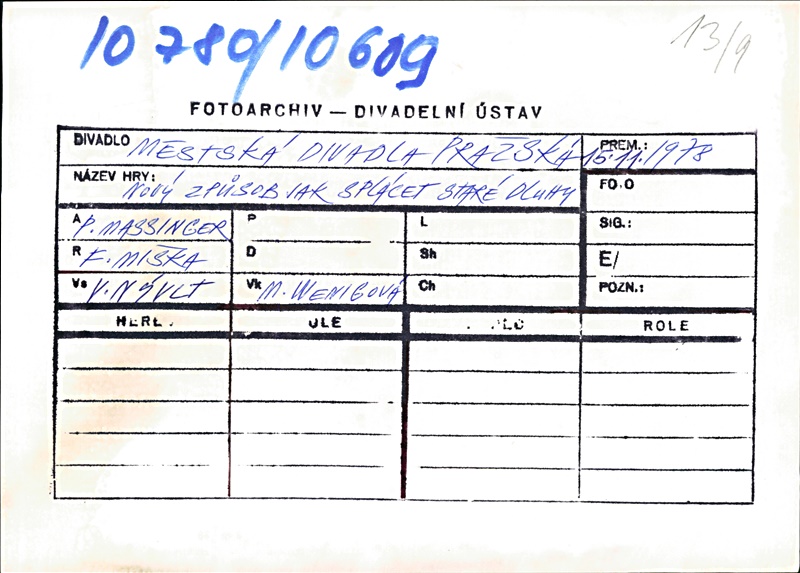 10 780/10 609
13/9
FOTOARCHIV — DIVADELNÍ ÚSTAV
DIVADLO MĚSTSKÁ DIVADLA PRAŽSKÁ PREM.: 15.11.1978
NÁZEV HRY: NOVÝ ZPŮSOB JAK SPLÁCET STARÉ DLUHY FO O
A P. MASSINGER P L SIG.:
R F. MIŠKA D Sh É/
Vs V. NÝVLT Vk M. WENIGOVÁ Ch POZN.:
HERE ULE ROLE